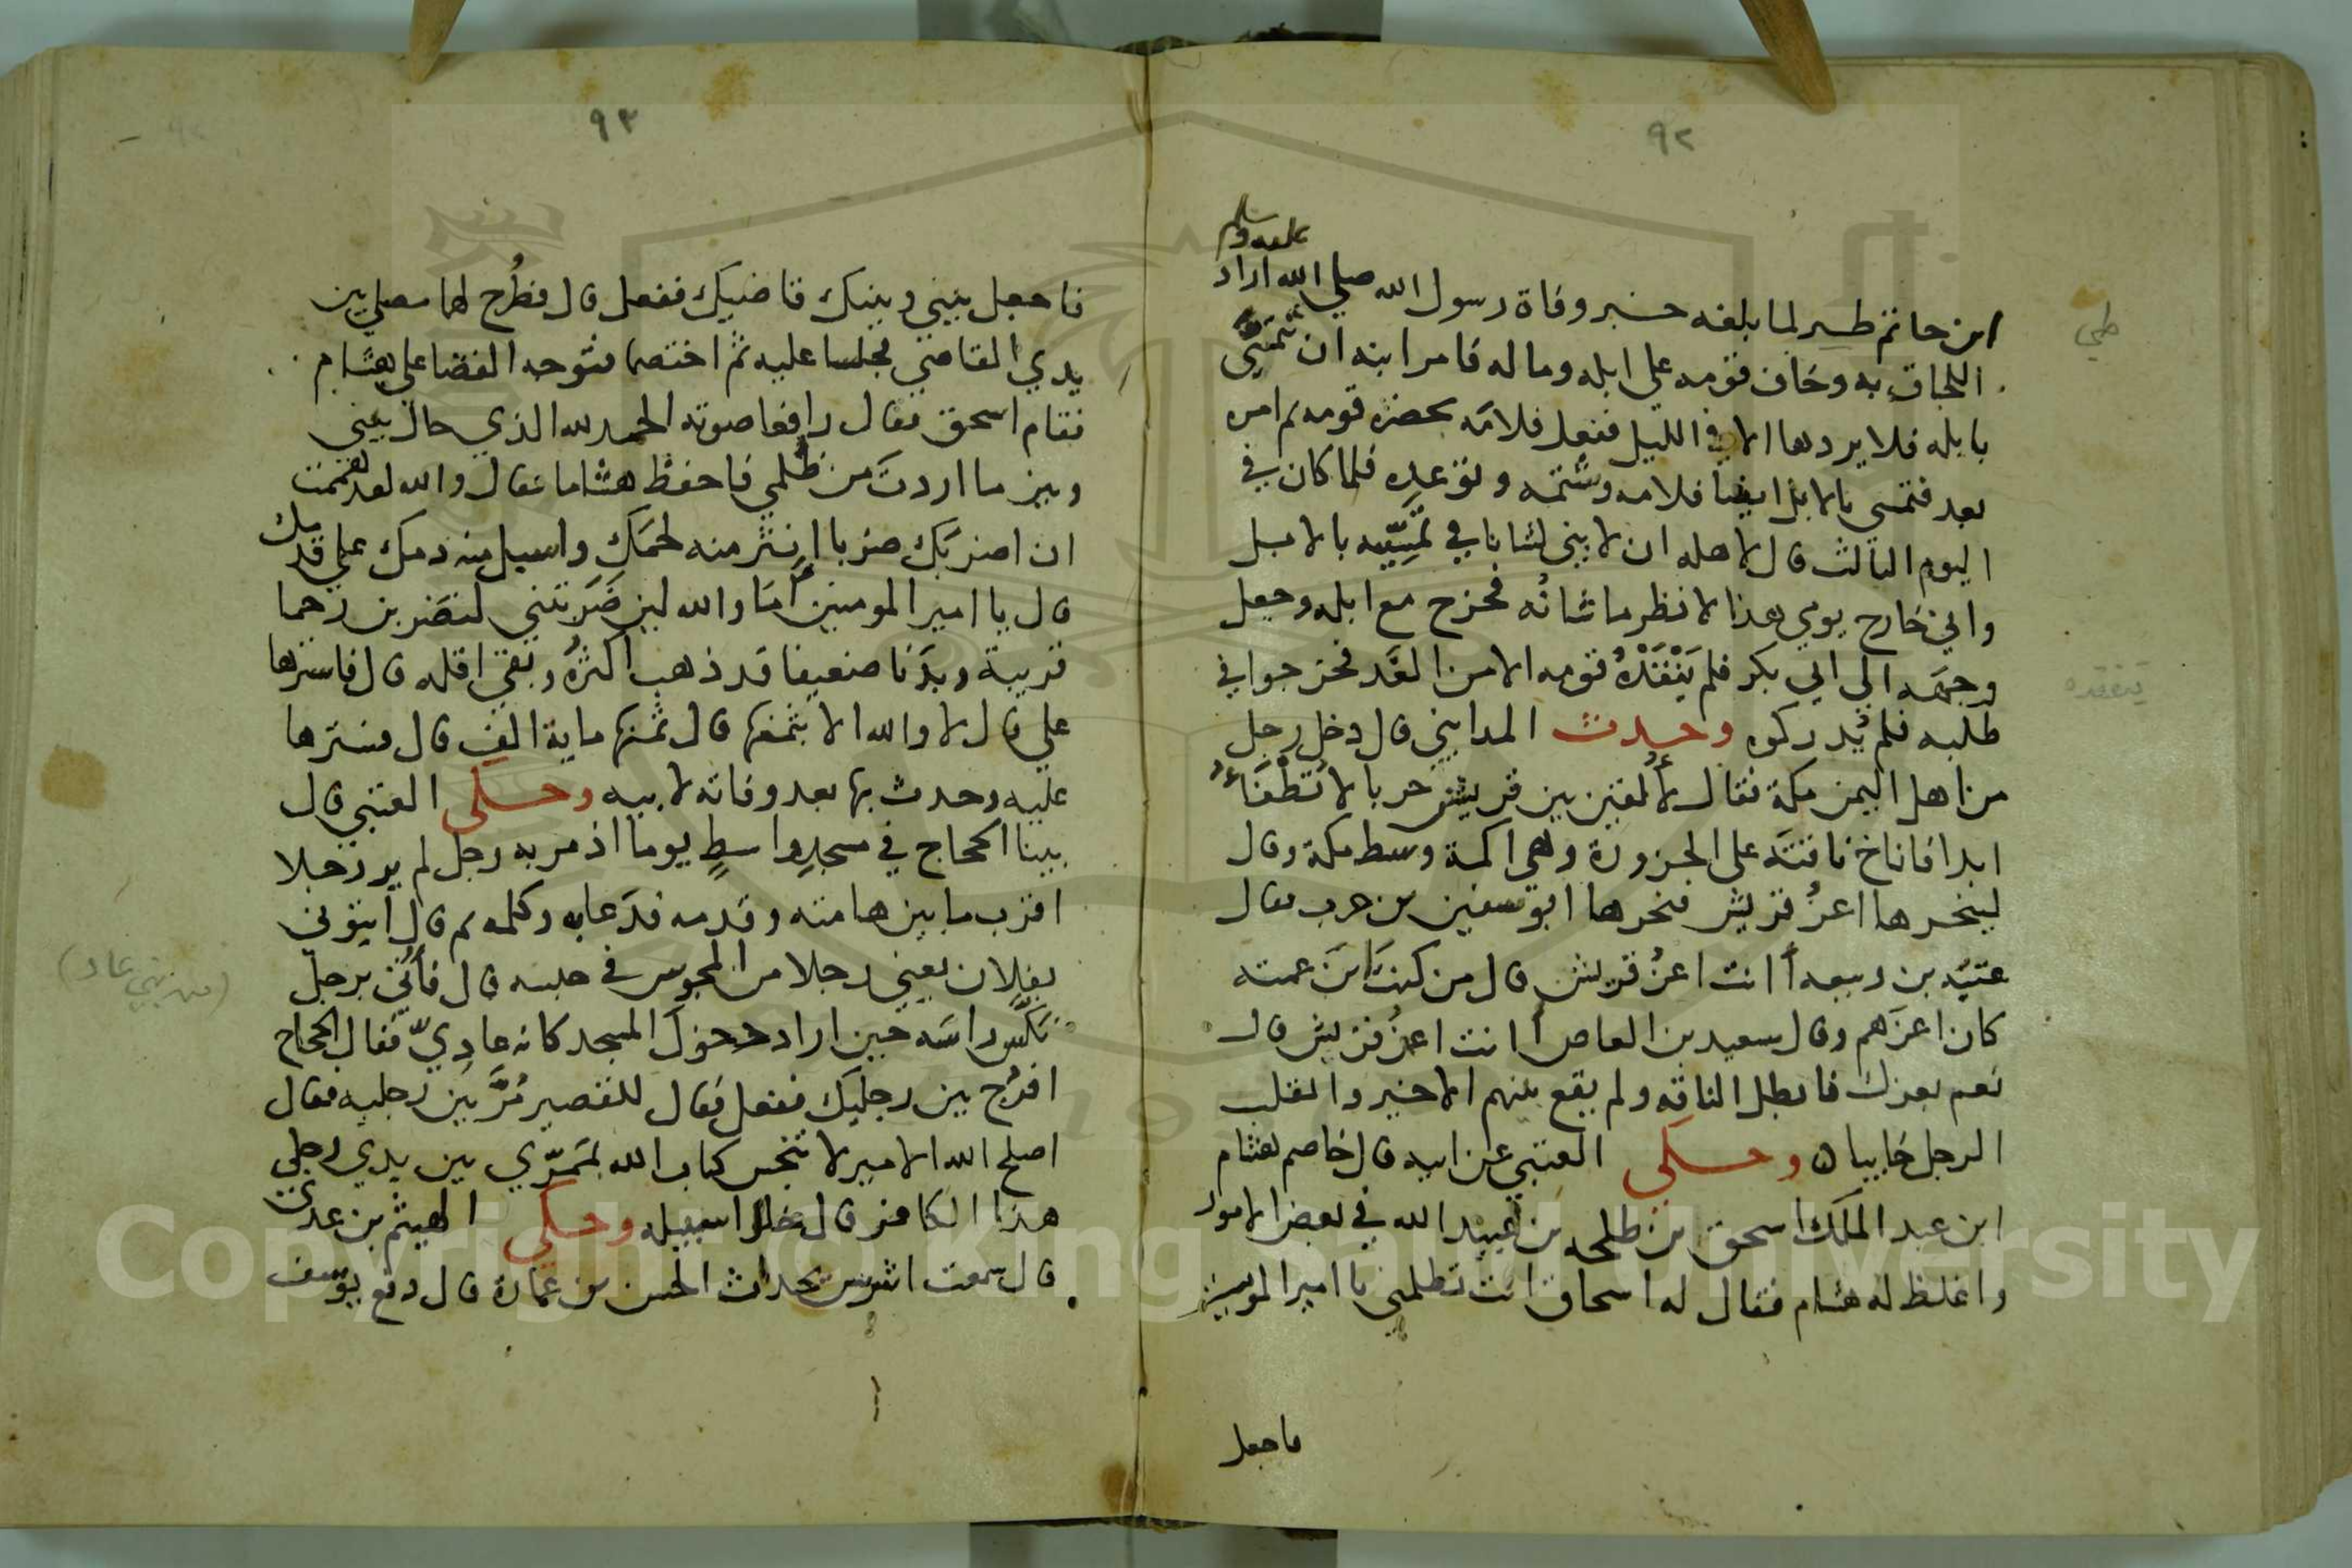 ٩٢
عليه وسلم
ابن حاتم طير لما بلغه خبر وفاة رسول الله صلي الله اراد
طي
اللحاق به وخاف قومه علي ابله وماله فامر ابنه ان تمسّي
بابله فلا يردها الا في الليل ففعل فلامَه بحضره قومه ثم امره
بعد فتمسي بالابل ايضا فلامه وشتمه وتوعده فلما كان في
اليوم الثالث قال لاهله ان لابني لشانا في تمسّيه بالابل
واني خارج يومي هذا لانظر ما شانُه فخرج مع ابله وجعل
وجهَه الي ابي بكر فلم يَتفَقدْهُ قومه الا من الغَد فخرجوا في
يتفقده
طلبه فلم يُدركوه وحدث المدايني قال دخل رجل
من اهل اليمن مكة فقال لأُلقين بين قريش حربا لا تُطْفَأُ
ابدا فاناخ ناقتَه علي الحزورة وهي اكمة وسط مكة وقال
لينحرها اعزُ قريش فنحرها ابو سفين بن حرب فقال
عتبَه بن ربيعه أانت اعزُ قريش قال من كنتَ ابنَ عمته
كان اعزَهم وقال سعيد بن العاص أانت اعزُ قريش قال
نعم بعزك فابطل الناقه ولم يقع بينهم الا خير وانقلب
الرجل خايبا ه وحكي العتبي عن ابيه قال خاصم هشام
ابن عبد الملك اسحق بن طلحه بن عبيد الله في بعض الامور
واغلظ له هشام فقال له اسحاق انت تظلمني يا امير المومنين
فاجعل
٩٣
فاجعل بيني وبينك قاضيك ففعل قال فطُرح لهما مصلي بين
يدي القاضي فجلسا عليه ثم اختصما فتوجه القضا علي هشام
فقام اسحق فقال رافعا صوته الحمد لله الذي حال بيني
وبين ما اردتَ من ظلمي فاحفظ هشاما فقال والله لقد هممت
ان اضربَك ضربا انثر منه لحمَك واسيل منه دمك علي قدميك
قال يا امير المومنين أمَا والله لين ضَرَبتني لتضربن رحما
قريبة وبدَنا ضعيفا قد ذهب اكثرهُ وبقي اقله قال فاسترها
علي قال لا والله الا بثمنها قال ثمنها ماية الف قال فسترها
عليه وحدث بها بعد وفاته لابيه وحكي العتبي قال
بينا الحجاج في مسجدِ واسطٍ يوما اذ مر به رجل لم ير رجلا
اقرب ما بين هامته وقدمه فدَعا به وكلمه ثم قال ايتوني
بفلان يعني رجلا من المجوس في حبسه قال فأُتي برجل
(من بني عاد)
نكّس راسَه حين اراد دخول المسجد كانه عادِيّ فقال الحجاج
افرُج بين رجليك ففعل فقال للقصير مُرَّ بين رجليه فقال
اصلح الله الامير لا تنجس كتاب الله بمَمَرّي بين يدي رجلي
هذا الكافر قال خلوا سبيله وحكي الهيثم بن عدي
قال سمعت اشرس يحدث الحسن بن عمارة قال دفع يوسف